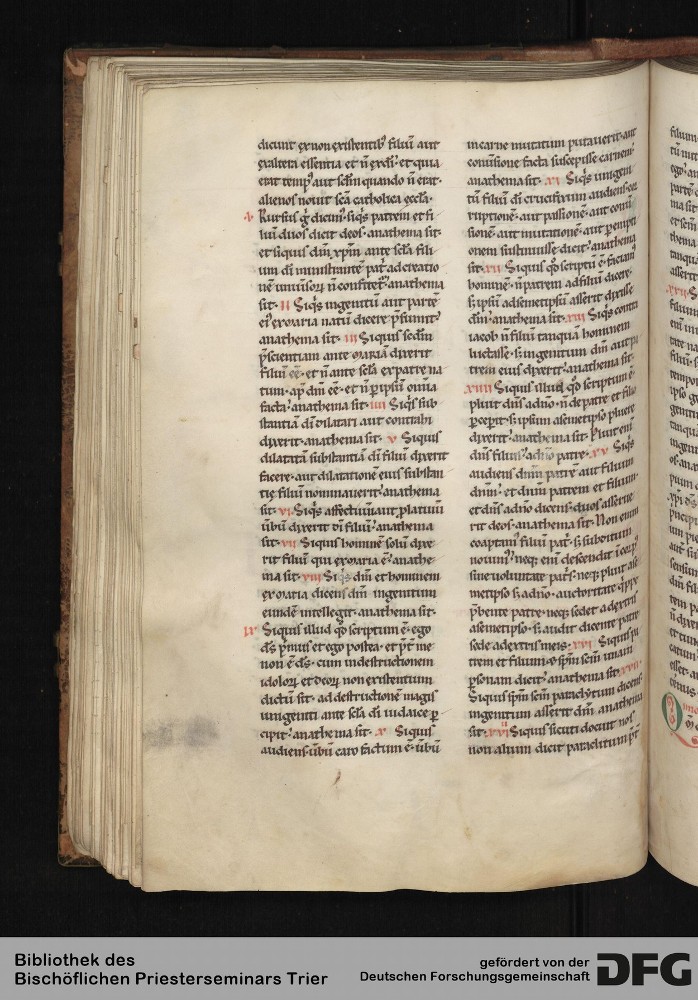 dicunt ex non existentib' filiū aut
ex altera essentia et n̄ ex dō· et quia
erat temp' aut sclm quando n̄ erat·
alienos nouit scā catholica eccla·
v Rursus g̊ dicim'· siqs patrem et fi
liū duos dicit deos· anathema sit·
et siquis dm̄ xpm̄ ante scla fili
um di ministrante patri ad creatio
nē uniūsorꝝ n̄ confitet'· anathema
sit· II Siqs ingenitū aut parte
ei' ex maria natū dicere p̄sumit'
anathema sit· III Siquis scdm
p̄scientiam ante mariā dixerit
filiū eē· et n̄ ante scla ex patre na
tum· ap̄ dm̄ eē· et n̄ p ipsū omia
facta· anathema sit· IIII Siqs sub
stantiā di dilatari aut contrahi
dixerit· anathema sit· v Siquis
dilatatā substantiā di filiū dixerit
facere· aut dilatationē eius substan
tie filiū nominauerit· anathema
sit· VI Siqs affectiuū aut platiuū
ūbū dixerit di filiū· anathema
sit· VII Siquis hominē solū dixe
rit filiū qui ex maria ē· anathe
ma sit· VIII Siqs dm̄ et hominem
ex maria dicens dm̄ ingenitum
eundē intellegit· anathema sit·
IX Siquis illud qd̄ scriptum ē· ego
ds̄ p̄mus et ego postea· et p̄t me
non ē ds̄· cum in destructionem
idolorꝝ et deorꝝ non existentium
dictū sit· ad destructionē magis
unigeniti ante scla di iudaice p
cipit· anathema sit· x Siquis
audiens· ūbū caro factum ē· ūbū
in carne mutatum putauerit· aut
conūsione facta suscepisse carnem·
anathema sit· XI Siqs unigeni
tū filiū di crucifixum audiens· cor
ruptionē· aut passionē· aut conū
sionē aut mutationē· aut pempti
onem sustinuisse dicit· anathema
sit· XII Siquis qd̄ scriptū ē· faciam'
hominē· n̄ patrem ad filiū dicere·
s; ipsū ad semetipsū asserit dixisse
dm̄· anathema sit· XIII Siqs contra
iacob n̄ filiū tanquā hominem
luctasse· s; ingenitum dm̄ aut pa
trem eius dixerit· anathema sit·
XIIII Siquis illud qd̄ scriptum ē·
pluit dn̄s a dn̄o· n̄ de patre et filio
pcepit· s; ipsum a semetipso pluere
dixerit· anathema sit· Pluit enī
dn̄s filius a dn̄o patre· XV Siqs
audiens dnm̄ patrē aut filium
dnm̄· et dnm̄ patrem et filium·
et dn̄s a dn̄o dicens· duos asserue
rit deos· anathema sit· Non enim
coaptam' filiū patri· s; subditum
noiuim'· neq; enī descendit ī corp'
sine uoluntate patris· neq; pluit ase
metipso s; a dn̄o· auctoritate qppe
p̄bente patre· neq; sedet a dextris
a semetipso· s; audit dicente patre
sede a dextris meis· XVI Siquis pa
trem et filium· & spm̄ scm̄ unam
psonam dicit· anathema sit· XVII
Siquis spm̄ scm̄ paraclytum dicens
ingenitum asserit dm̄· anathema
sit· XVIII Siquis sicuti docuit nos
non alium dicit paraclitum p̄t
Bibliothek des
Bischöflichen Priesterseminars Trier
gefördert von der
Deutschen Forschungsgemeinschaft
DFG